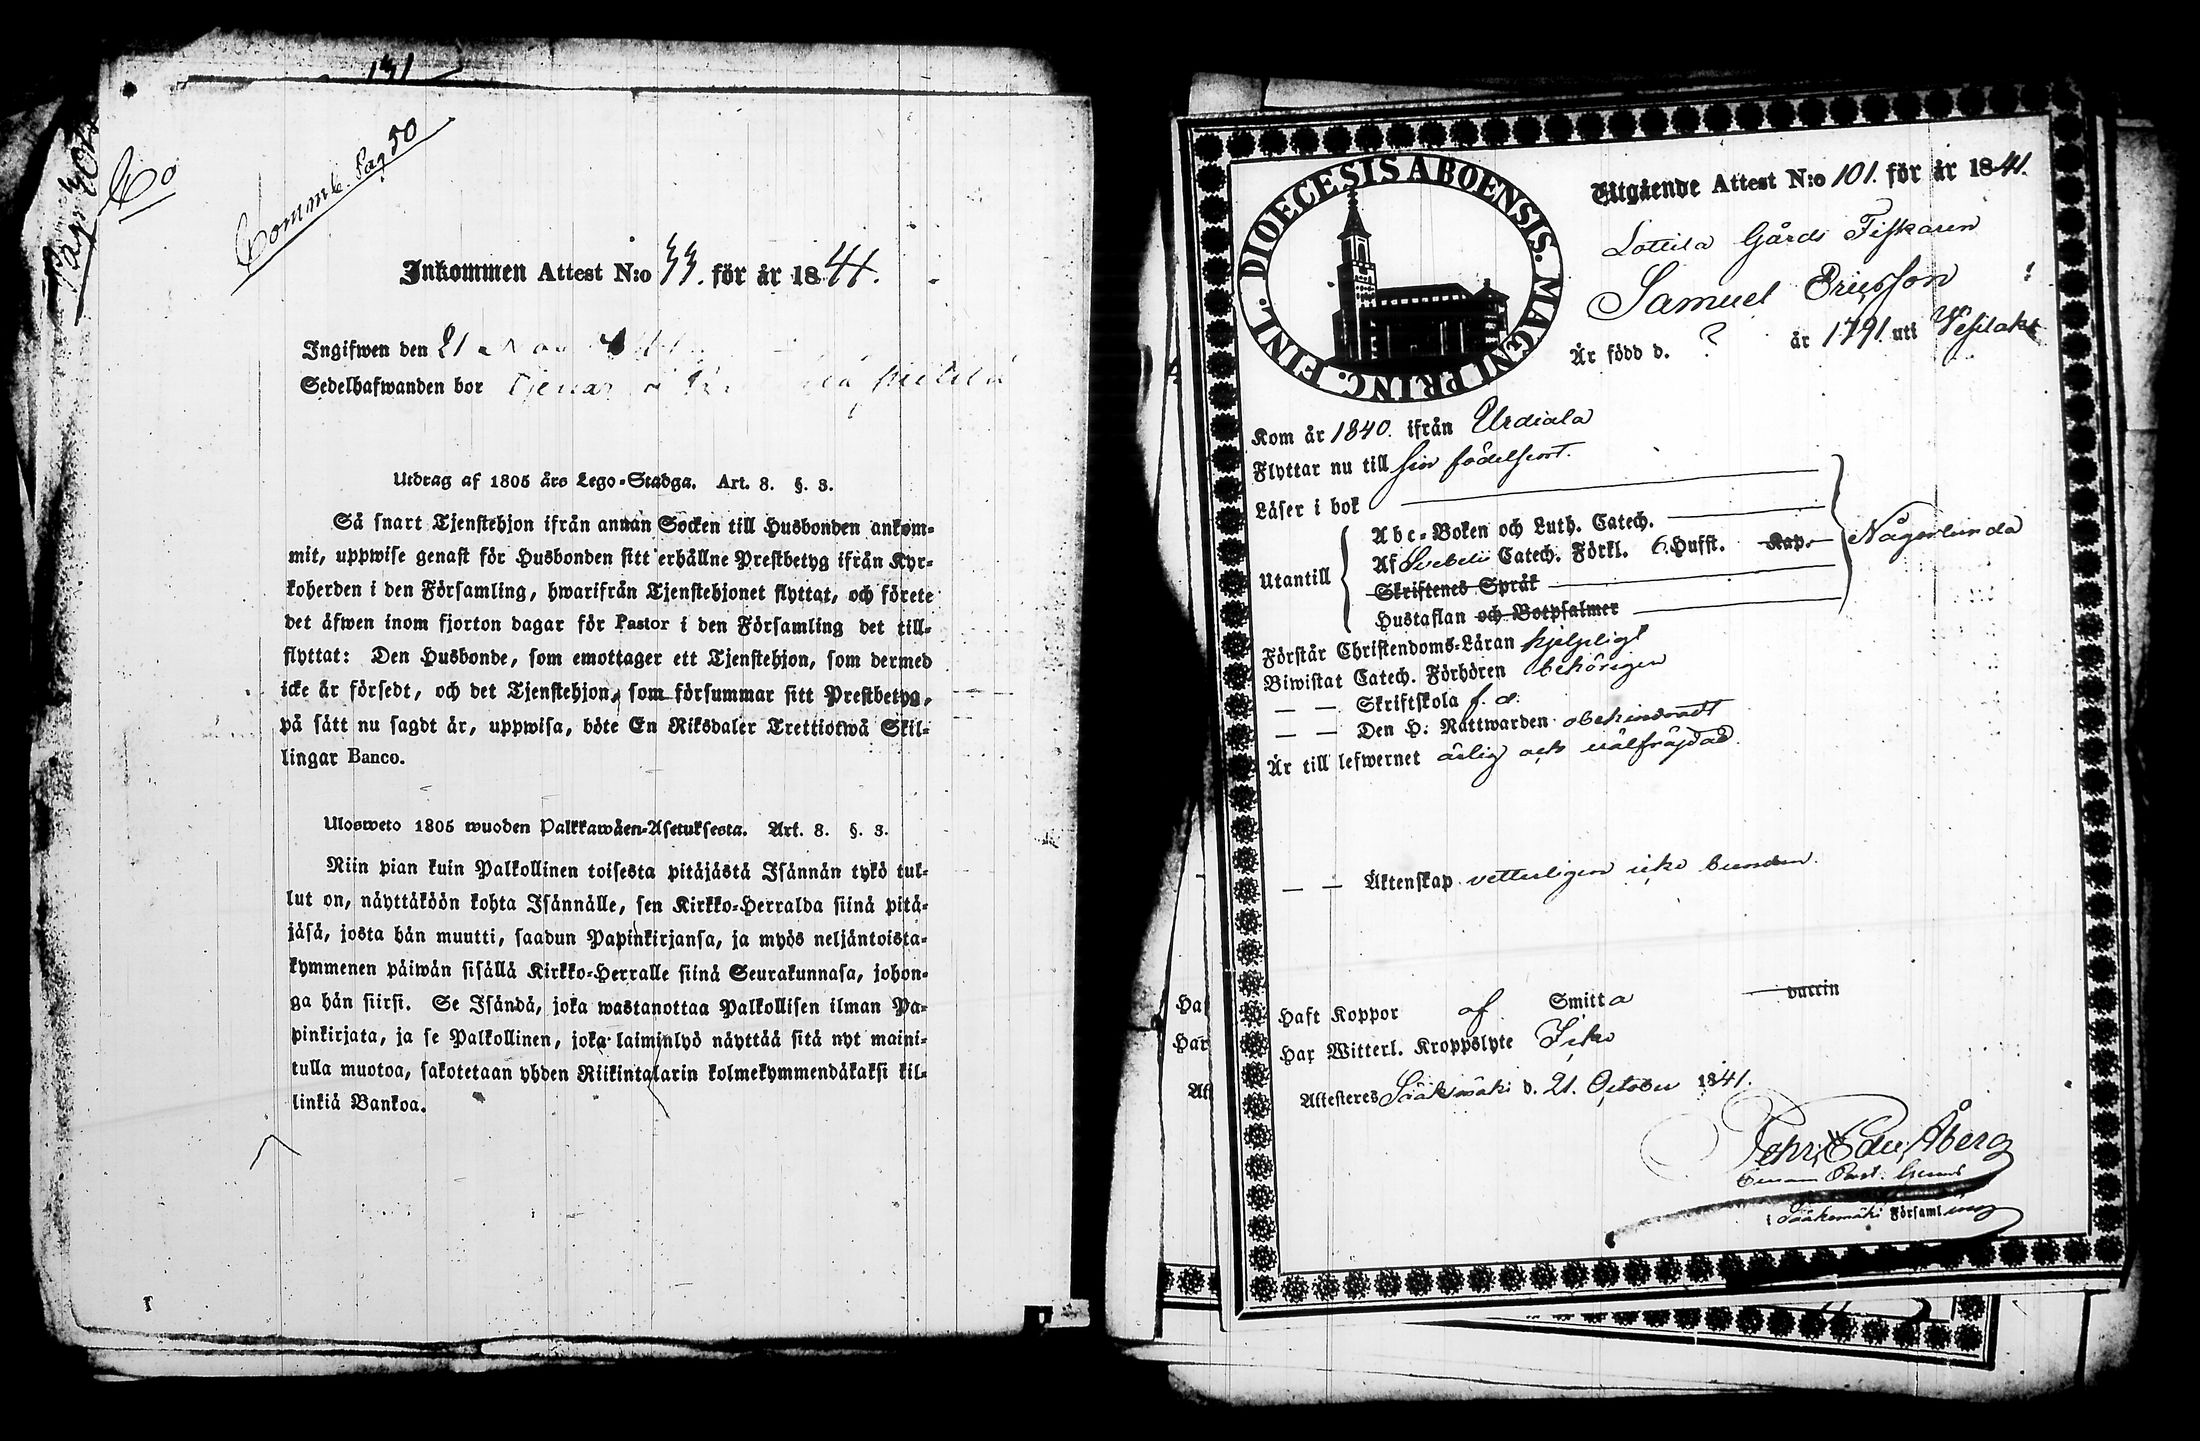 131
Pag 402
Co
Commb. Pag 50
Inkommen Attest N:o 33. för år 1841.
Ingifwen den 21 Nov
Sedelhafwanden bor
Utdrag af 1805 års Lego-Stadga. Art. 8. §. 3.
Så snart Tjenstehjon ifrån annan Socken till Husbonden ankom-
mit, uppwise genast för Husbonden sitt erhållne Prestbetyg ifrån Kyr-
koherden i den Församling, hwarifrån Tjenstehjonet flyttat, och förete
det äfwen inom fjorton dagar för Pastor i den Församling det till-
flyttat: Den Husbonde, som emottager ett Tjenstehjon, som dermed
icke är försedt, och det Tjenstehjon, som försummar sitt Prestbetyg,
på sätt nu sagdt är, uppwisa, böte En Riksdaler Trettiotwå Skil-
lingar Banco.
Ulosweto 1805 wuoden Palkkawäen-Asetuksesta. Art. 8. §. 3.
Niin pian kuin Palkollinen toisesta pitäjästä Isännän tykö tul-
lut on, näyttäköön kohta Isännälle, sen Kirkko-Herralda siinä pitä-
jäsä, josta hän muutti, saadun Papinkirjansa, ja myös neljäntoista-
kymmenen päiwän sisällä Kirkko-Herralle siinä Seurakunnasa, johon-
ga hän siirsi. Se Isändä, joka wastanottaa Palkollisen ilman Pa-
pinkirjata, ja se Palkollinen, joka laiminlyö näyttää sitä nyt maini-
tulla muotoa, sakotetaan yhden Riikintalarin kolmekymmendäkaksi kil-
linkiä Bankoa.
DIOECESIS ABOENSIS. MAGNI PRINC. FINL.
Utgående Attest N:o 101. för år 1841.
Lottila Gårds Fiskaren
Samuel Ericsson
Är född d. ? år 1791 uti Vesilaks
Kom år 1840. ifrån Urdiala
Flyttar nu till sin födelseort.
Läser i bok
Någorlunda
Utantill
Abc-Boken och Luth. Catech.
Af Svebelii Catech. Förkl. 6. Hufst. Kap.
Skriftenes Språk
Hustaflan och Botpsalmer
Förstår Christendoms-Läran hjelpligt
Biwistat Catech. Förhören behörigen
— — Skriftskola f. d.
— — Den H: Nattwarden obehindradt
Är till lefwernet ärlig och välfrägdad.
— — Äktenskap vetterligen icke bunden.
Haft Koppor af Smitta vaccin
Har Witterl. Kroppslyte Icke
Attesteres Sääksmäki d. 21. October 1841.
Pehr Edv. Åberg
i Sääksmäki Församling
Haf
Har
Att